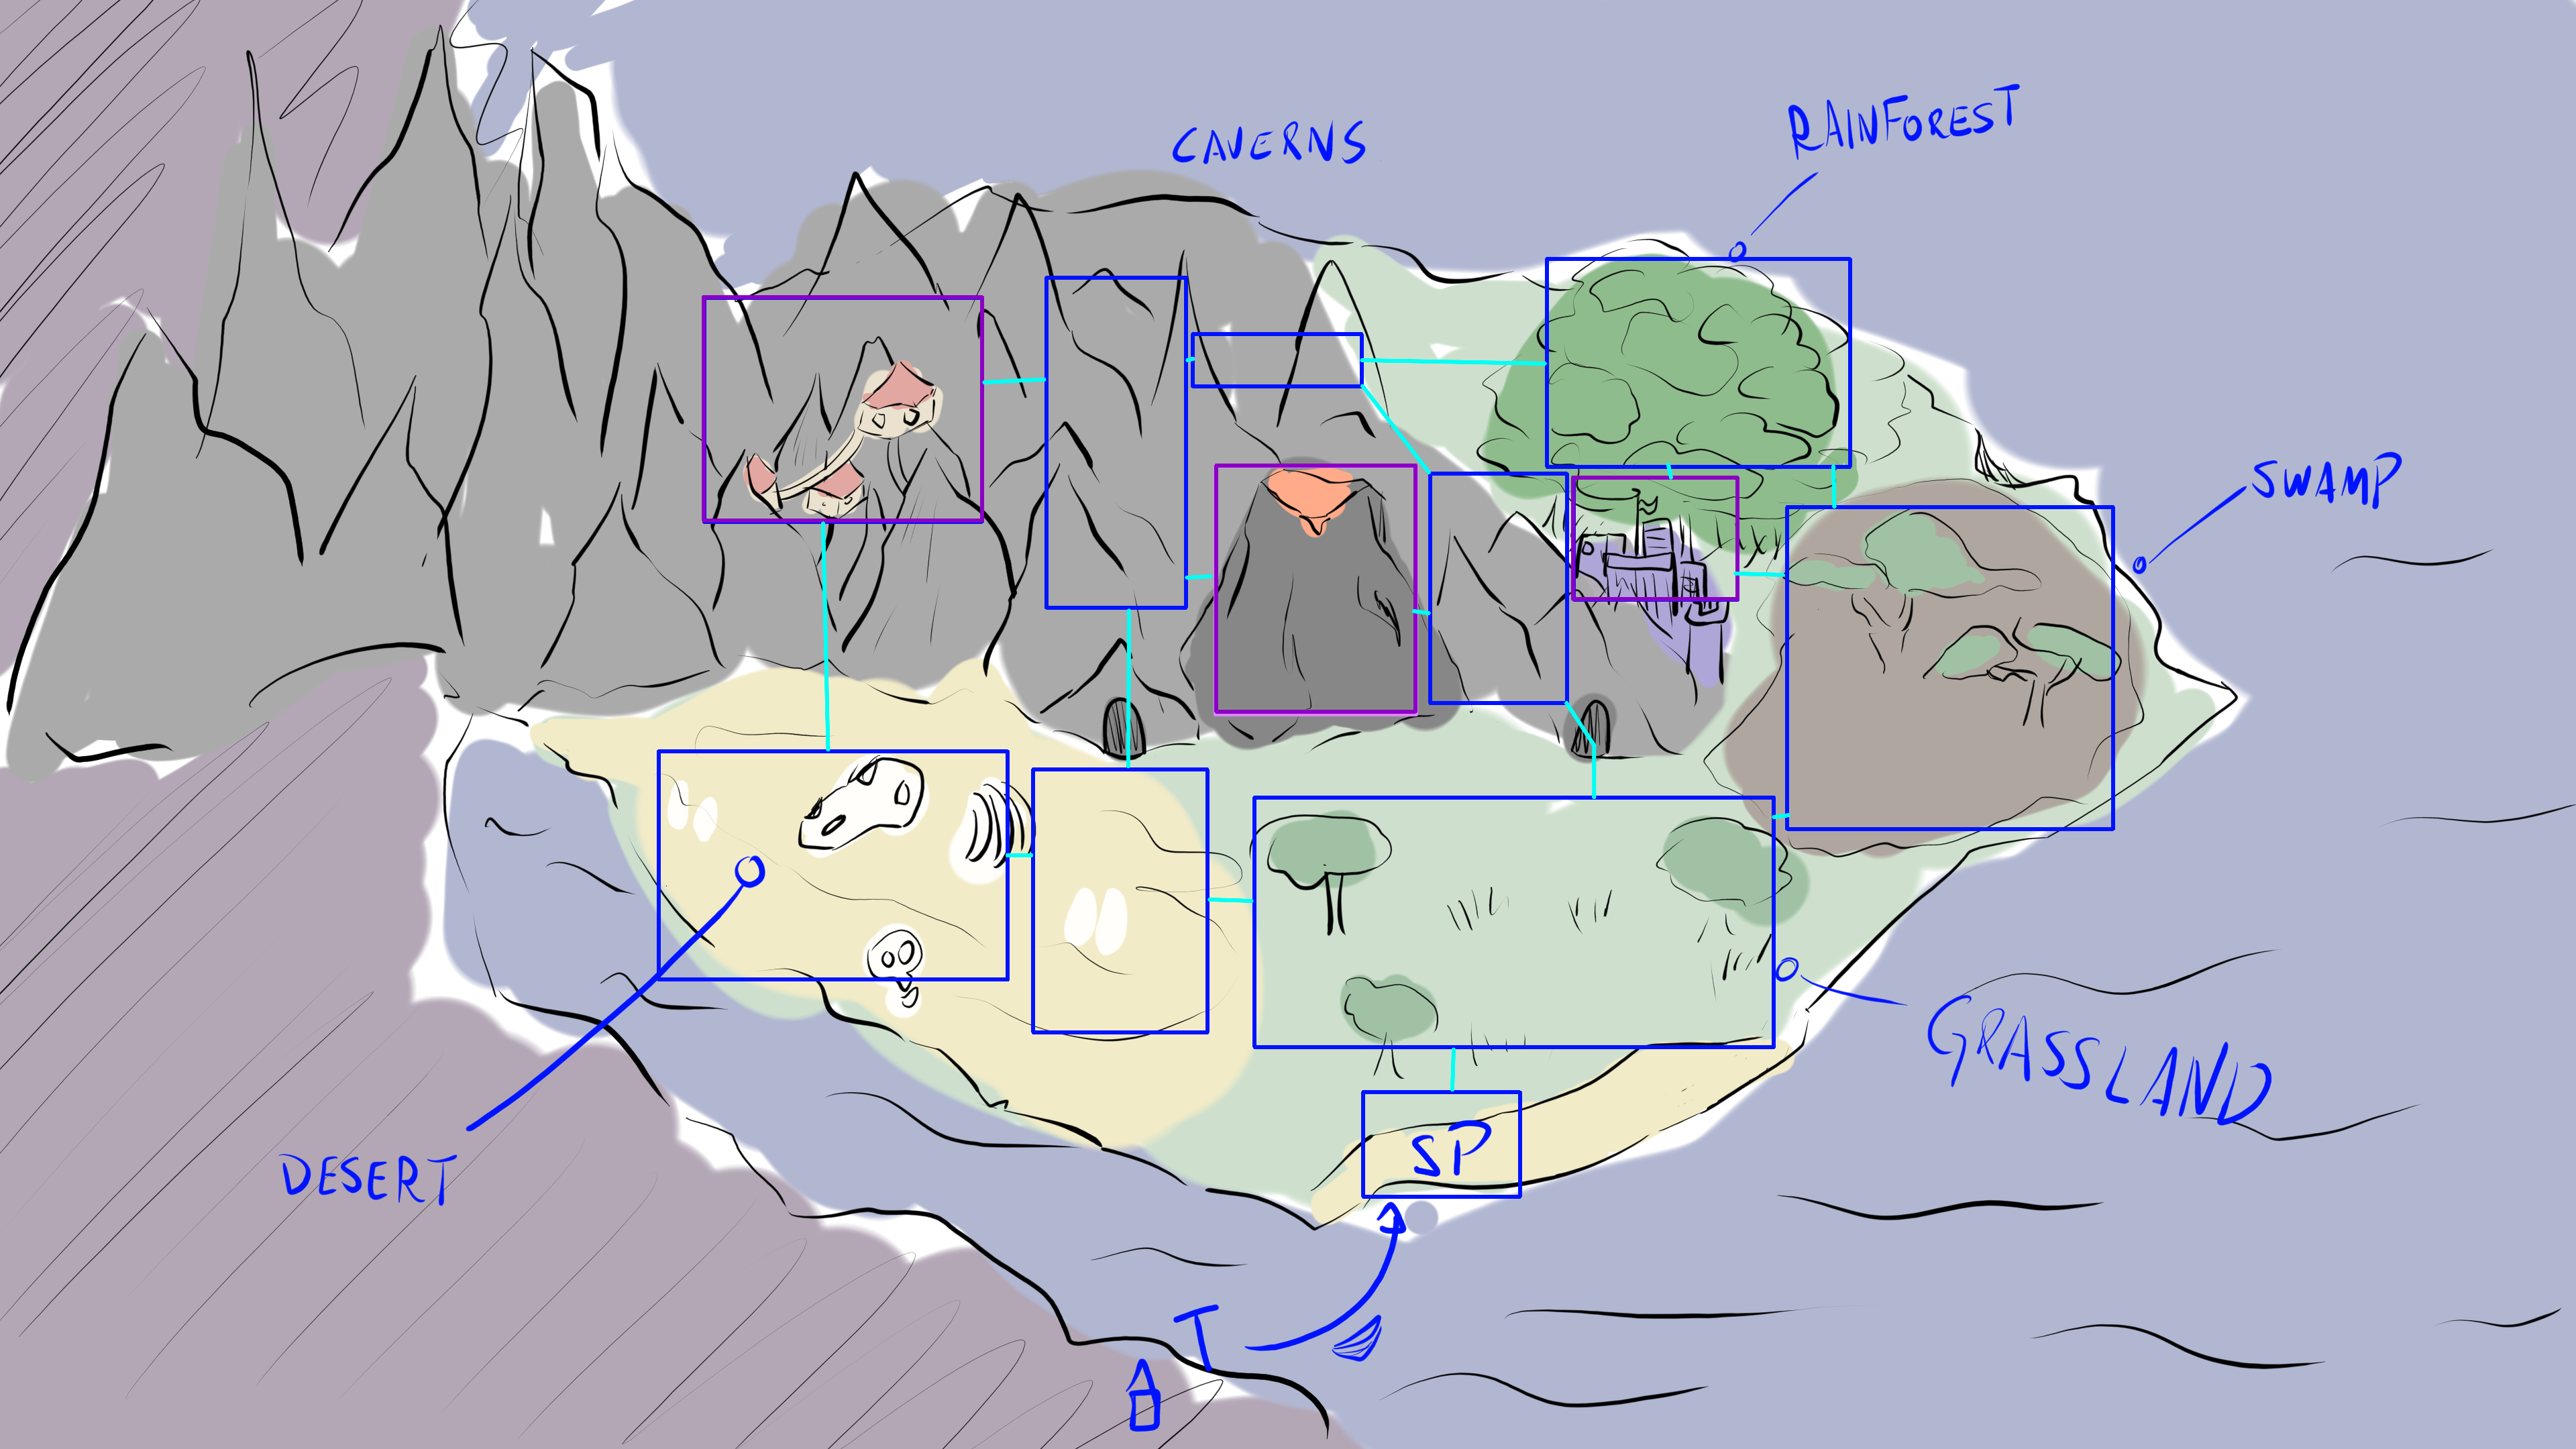 CAVERNS
RAINFOREST
SWAMP
GRASSLAND
DESERT
SP